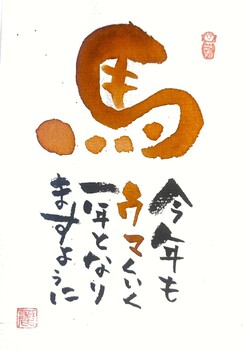 馬
今年も
ウマくいく
一年となり
ますように